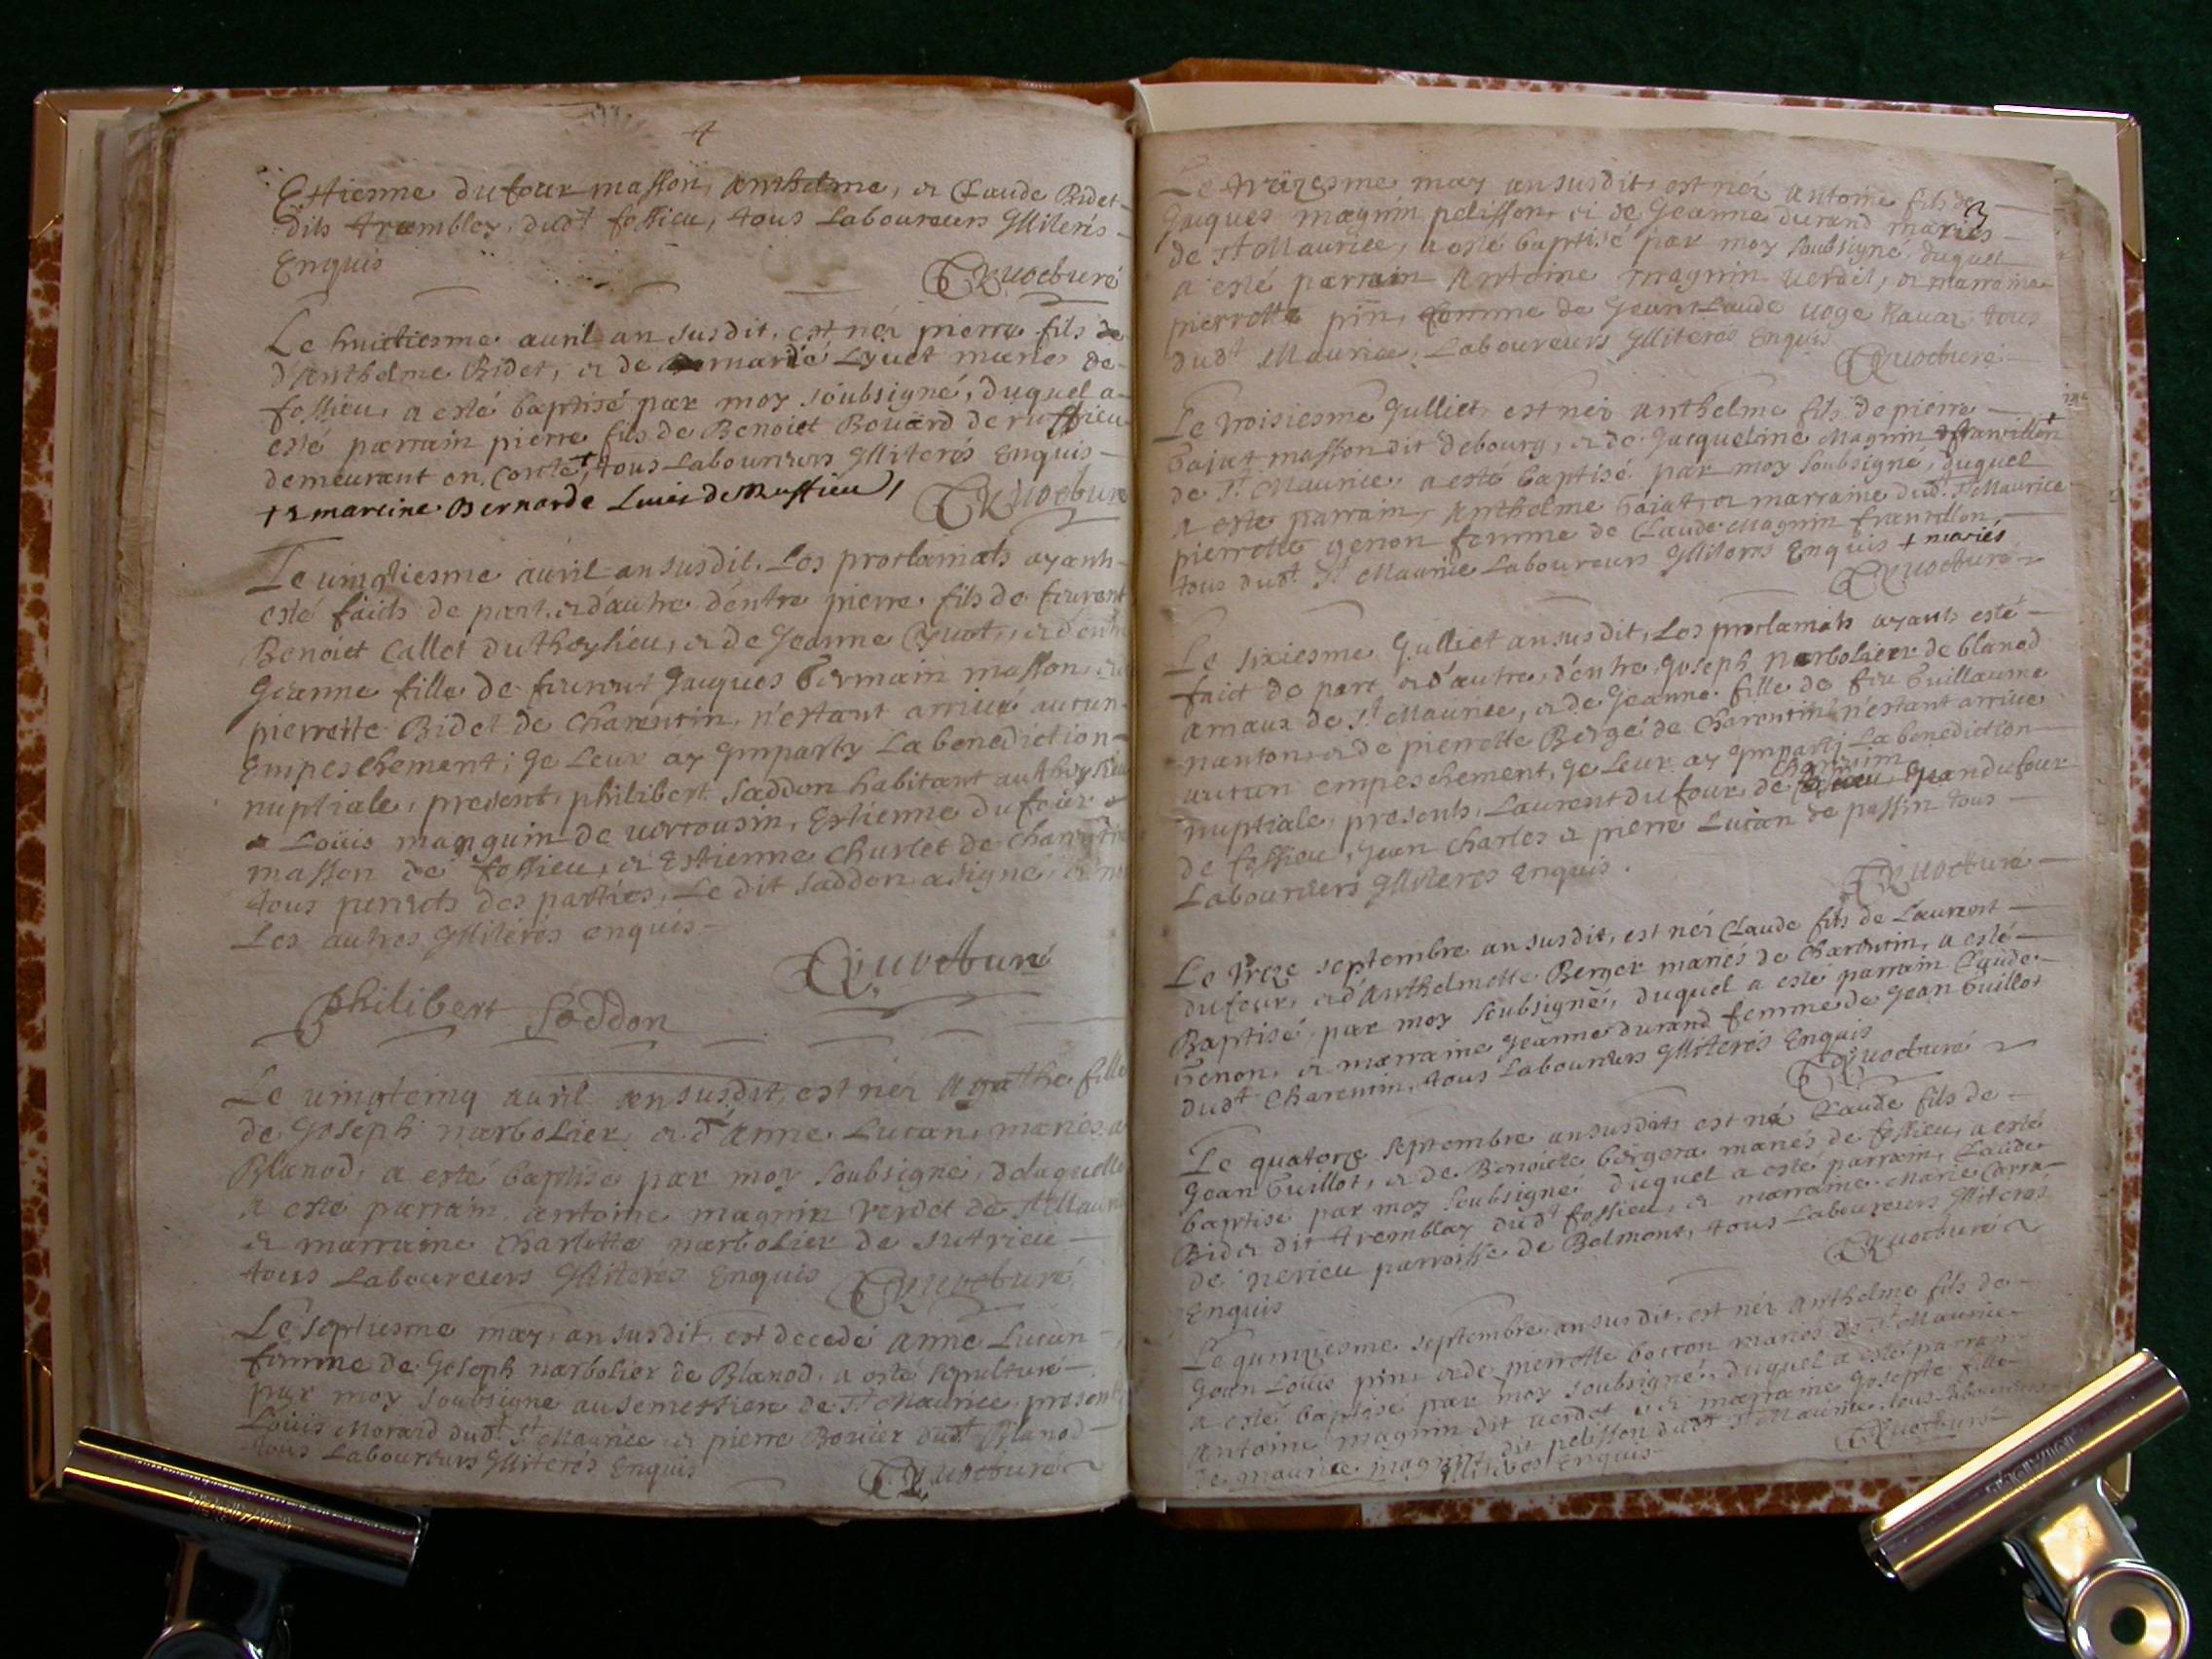 4
Estienne dufour masson, Anthelme, et Claude Bidet
dits tremblay, dudt fossieu, tous Laboureurs Illiterés
Enquis
Le huictiesme auril an susdit, est néz pierre fils de
d'Anthelme Bidet, et de Bernarde Lyuet mariés de
fossieu, a esté baptisé par moy soubsigné, duquel a
esté parrain pierre fils de Benoict Bouard de ruffieu
demeurant en Conté, + tous Laboureurs Illiterés Enquis
+ et mareine Bernarde Luiés de Ruffieu
Le uingtiesme auril an susdit. Les proclamats ayants
esté faicts de part, et d'autre d'entre pierre fils de
Benoict Callet du thoysieu, et de Jeanne
Jeanne fille de Jacques Germain masson, et
pierrette Bidet de Charentin, n'estant arriué aucun
Empeschement; Je Leur ay Imparty La benediction
nuptiale, present, philibert Saddon habitant au
et Loüis manguin de uertousin, Estienne dufour
masson de fossieu, et Estienne Charlet de Charentin
tous parents des parties, Le dit Saddon a signé, et non
Les autres Illiterés enquis
Philibert Saddon
Le uingtcinq auril an susdit, est néz Agathe fille
de Joseph narbolier, et d'Anne Lucan, mariés a
Blanod, a esté baptisé par moy soubsigné, delaquelle
a esté parrain antoine magnin verdet de St Maurice
et marraine Charlotte narbolier de Sutrieu
tous Laboureurs Illiterés Enquis
Le septiesme may, an susdit est decedé anne Lucan
femme de Joseph narbolier de Blanod, a esté sepulturé
par moy soubsigné au semettiere de St Maurice, presents
Loüis Morard dudt St Maurice et pierre Bouier dudt Blanod
tous Laboureurs Illiterés Enquis
3
Le treizesme may an susdit, est néz antoine fils de
Jacques magnin pelisson, et de Jeanne durand mariés
de St Maurice, a esté baptisé par moy soubsigné, duquel
a esté parrain Antoine magnin uerdet, et marraine
pierrotte pin, femme de Jean Claude uoge tous
dudt Maurice, Laboureurs Illiterés Enquis
Le troisiesme Julliet, est néz Anthelme fils de pierre
masson dit debourg, et de Jacqueline Magnin +
de St Maurice, a esté baptisé par moy soubsigné, duquel
a esté parrain, Anthelme et marraine dudt St Maurice
pierrotte genon femme de Claude Magnin
tous dudt St Maurice Laboureurs Illiterés Enquis + mariés
Le sixiesme Julliet an susdit, Les proclamats ayants esté
faict de part et d'autre, d'entre Joseph Narbolier de blanod
amaux de St Maurice, et de Jeanne fille de feu Guillaume
nanton, et de pierrotte Bergé de Charentin n'estant arriué
aucun empeschement, Je Leur ay Imparti La benediction
nuptiale, presents, Laurent dufour, de Jean dufour
de fossieu, Jean Charles et pierre Lucan de passin tous
Laboureurs Illiteres Enquis.
Le treze septembre an susdit, est néz Claude fils de Laurent
dufour, et d'Anthelmette Berger mariés de Charentin, a esté
Baptisé par moy soubsigné, duquel a esté parrain Claude
Genon, et marraine Jeanne durand femme de Jean Guillot
dudt Charentin, tous Laboureurs Illiterés Enquis
Le quatorze septembre an susdit, est né Claude fils de
Jean Guillot, et de Benoicte bergera mariés de fossieu, a esté
baptisé par moy soubsigné duquel a esté parrain, Claude
Bidet dit tremblay dudt fossieu, et marraine Marie Carra
de nerieu parroisse de Belmont, tous Laboureurs Illiterés
Enquis
Le quinziesme septembre an susdit, est néz Anthelme fils de
Jean Loüis pin, et de pierrotte botton mariés de St Maurice
a esté baptisé par moy soubsigné, duquel a esté parrain
Antoine magnin dit uerdet et marraine Josepte fille
de maurice magnin dit pelisson dudt St Maurice tous Laboureurs
Illiterés Enquis